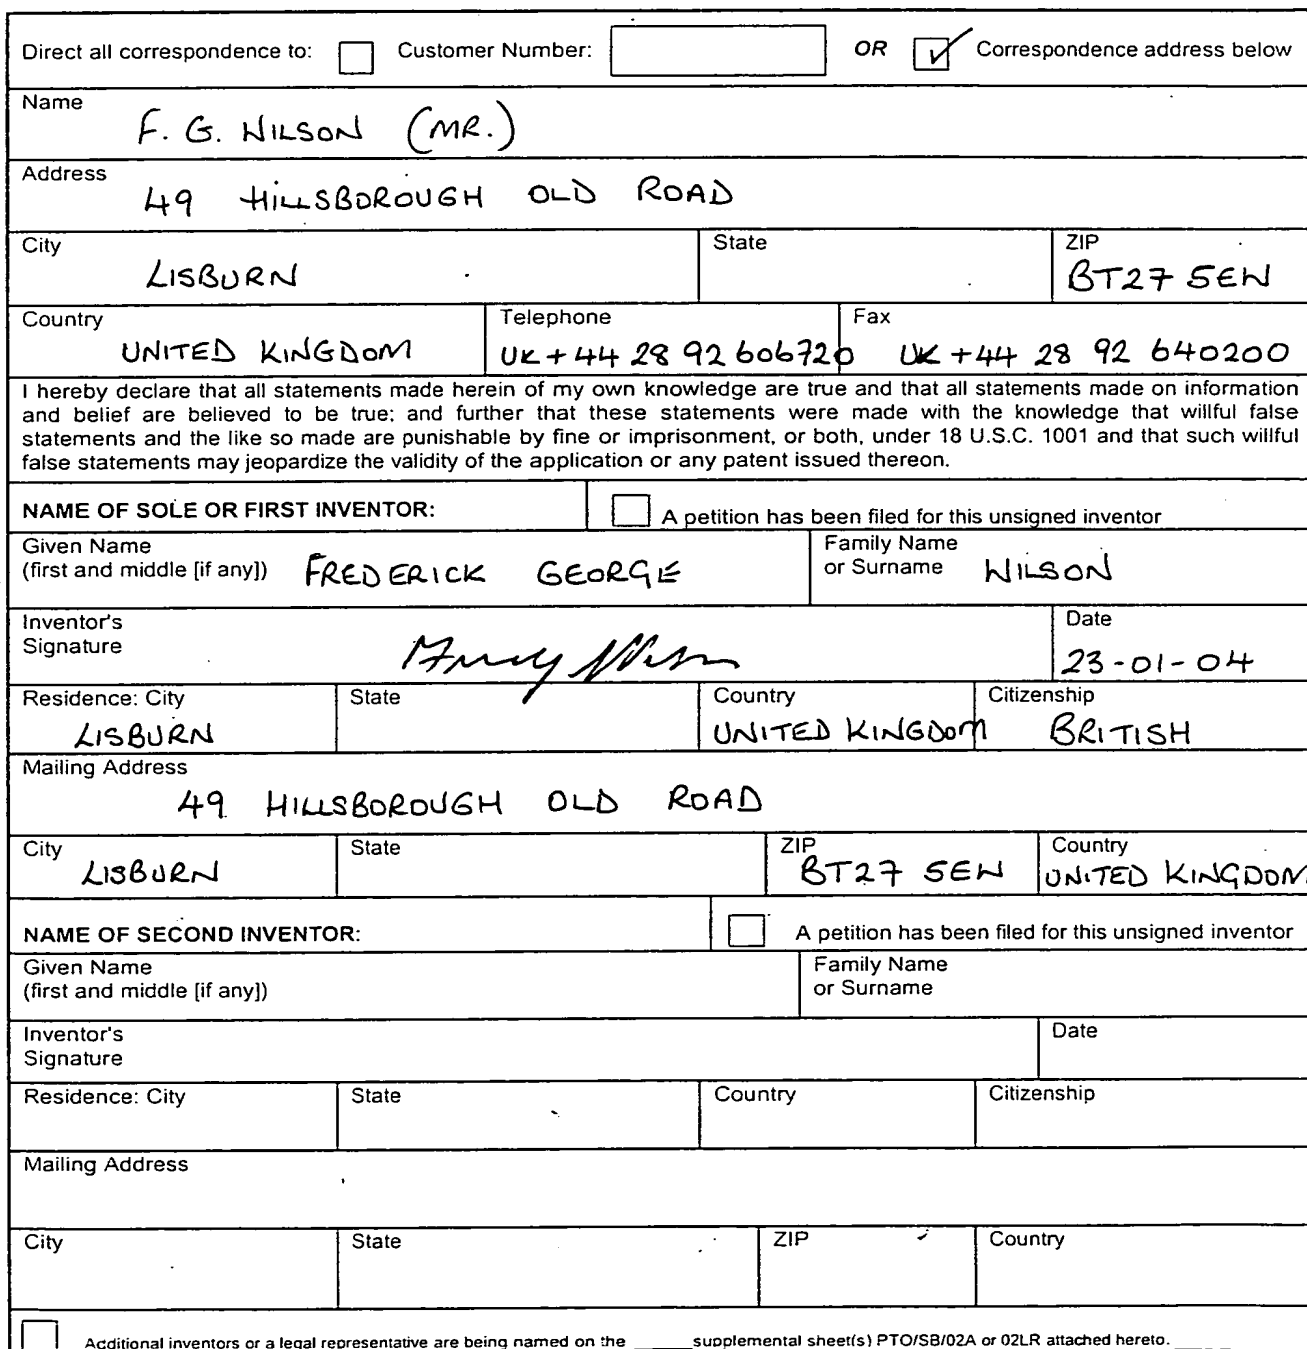 Direct all correspondence to: Customer Number: OR Correspondence address below
Name
F. G. WILSON (MR.)
Address
49 HILLSBOROUGH OLD ROAD
City State ZIP
LISBURN BT27 5EW
Country Telephone Fax
UNITED KINGDOM UK +44 28 92 606720 UK +44 28 92 640200
I hereby declare that all statements made herein of my own knowledge are true and that all statements made on information
and belief are believed to be true; and further that these statements were made with the knowledge that willful false
statements and the like so made are punishable by fine or imprisonment, or both, under 18 U.S.C. 1001 and that such willful
false statements may jeopardize the validity of the application or any patent issued thereon.
NAME OF SOLE OR FIRST INVENTOR: A petition has been filed for this unsigned inventor
Given Name Family Name
(first and middle [if any]) FREDERICK GEORGE or Surname WILSON
Inventor's Date
Signature
23-01-04
Residence: City State Country Citizenship
LISBURN UNITED KINGDOM BRITISH
Mailing Address
49 HILLSBOROUGH OLD ROAD
City State ZIP Country
LISBURN BT27 5EW UNITED KINGDOM
NAME OF SECOND INVENTOR: A petition has been filed for this unsigned inventor
Given Name Family Name
(first and middle [if any]) or Surname
Inventor's Date
Signature
Residence: City State Country Citizenship
Mailing Address
City State ZIP Country
Additional inventors or a legal representative are being named on the ______ supplemental sheet(s) PTO/SB/02A or 02LR attached hereto.